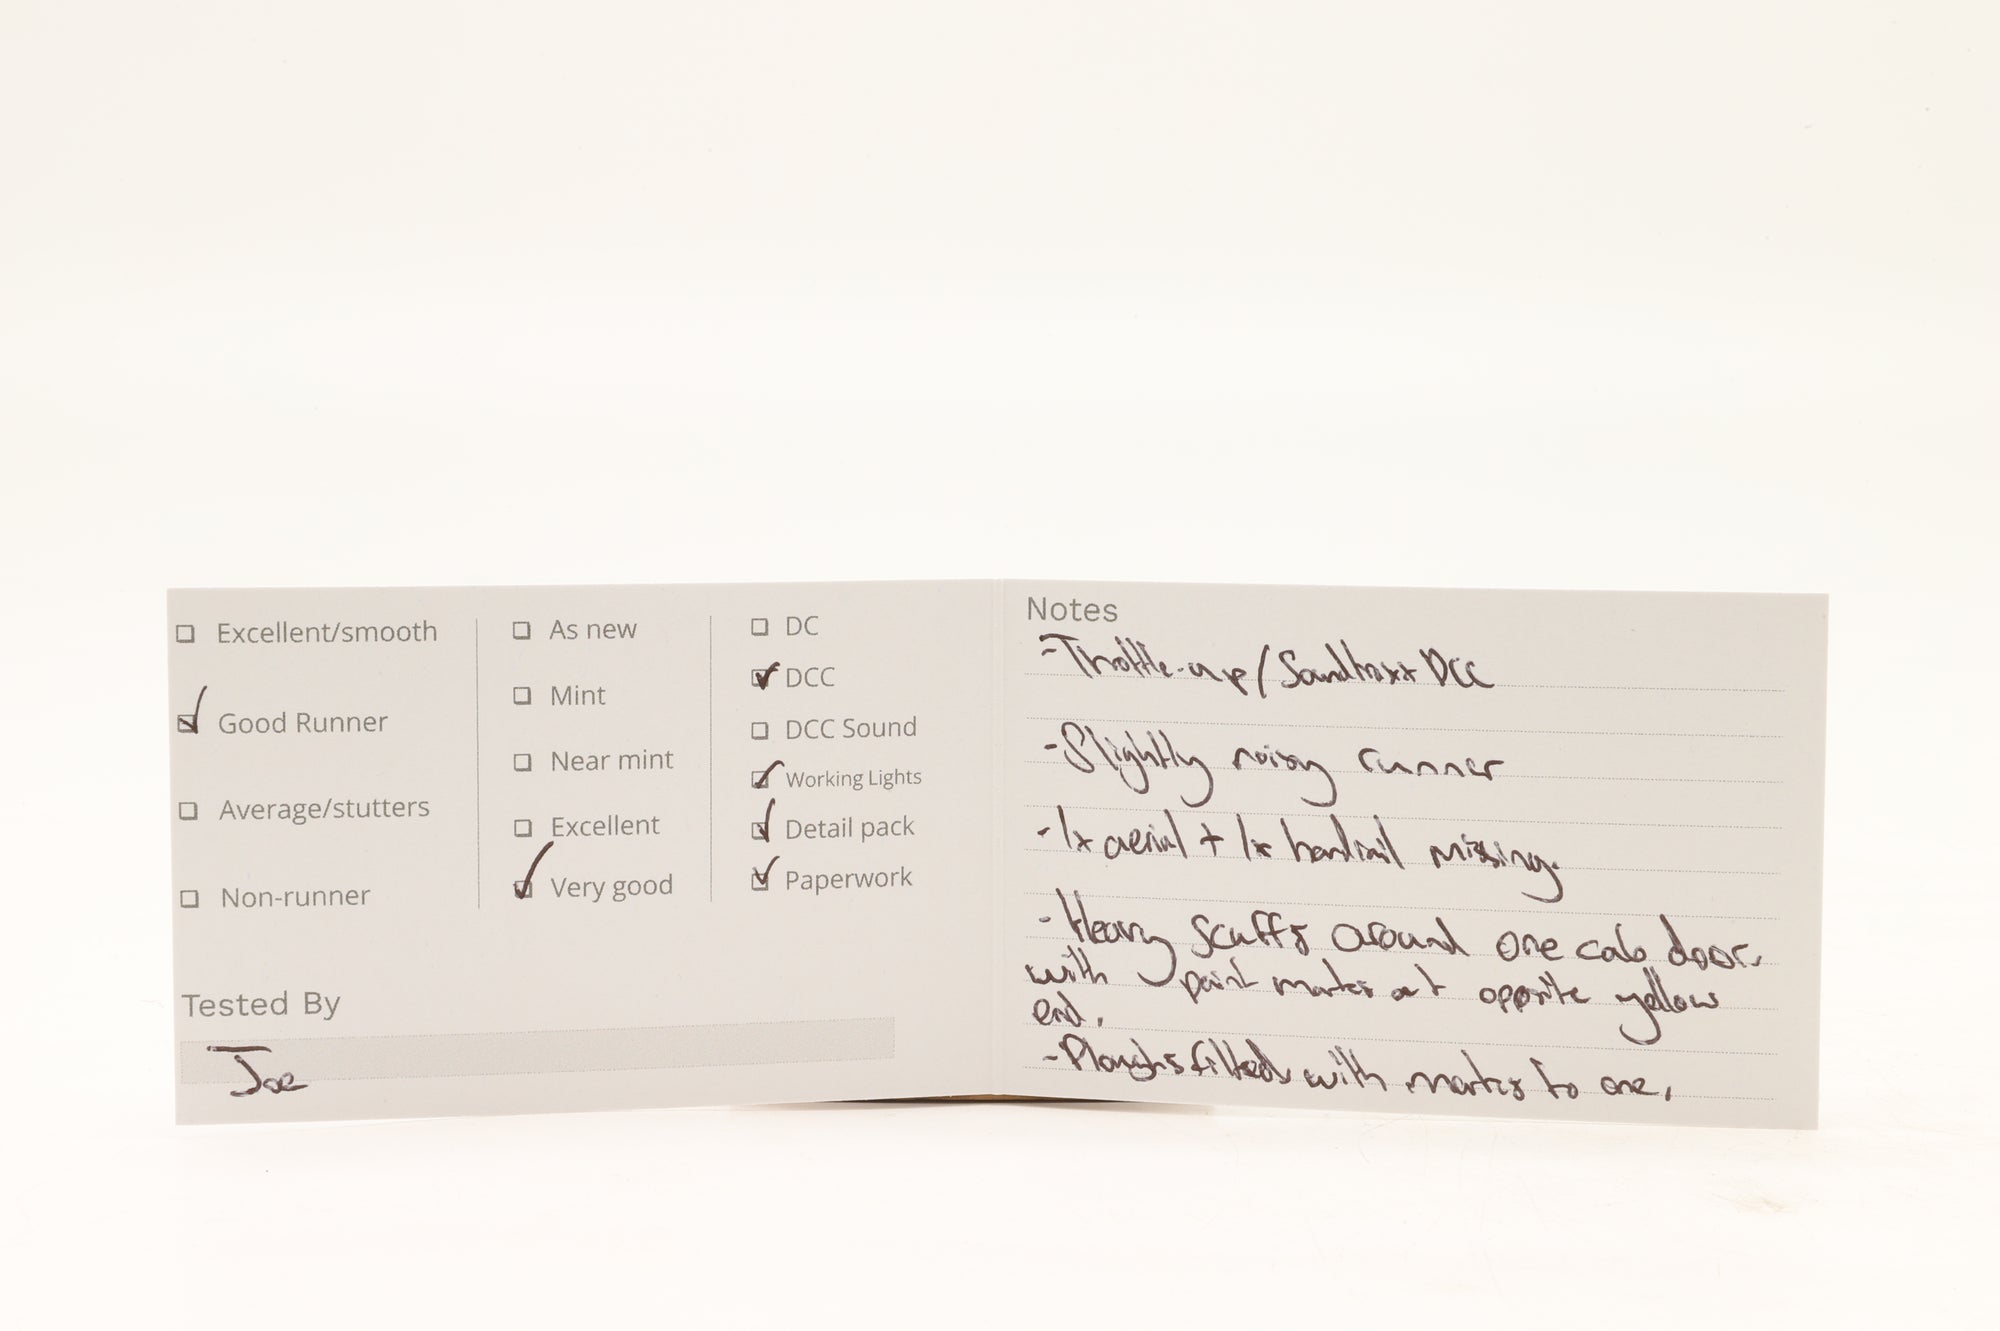 Excellent/smooth
Good Runner
Average/stutters
Non-runner
As new
Mint
Near mint
Excellent
Very good
DC
DCC
DCC Sound
Working Lights
Detail pack
Paperwork
Tested By
Joe
Notes
-Throttle-up/Soundtraxx DCC
-Slightly noisy runner
-1x aerial + 1x handrail missing.
-Heavy scuffs around one cab door
with paint marks at opposite yellow
end.
-Ploughs fitted with marks to one.